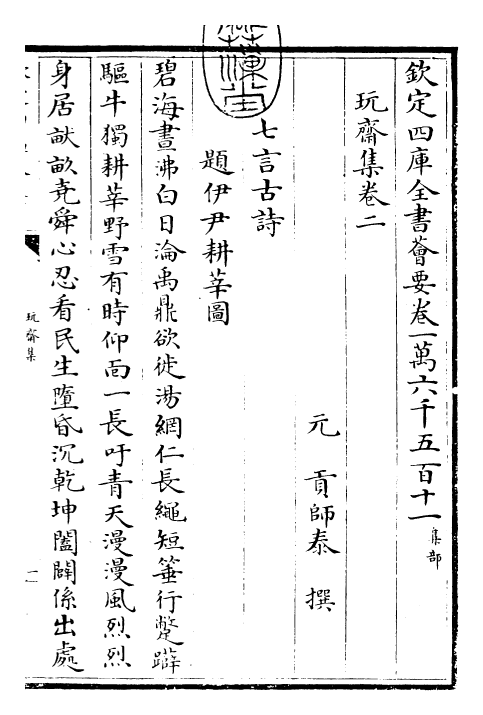 欽定四庫全書薈要卷一萬六千五百十一集部
玩齋集卷二
元 貢師泰 撰
七言古詩
題伊尹耕莘圖
碧海晝沸白日淪禹鼎欲徙湯網仁長繩短箠行蹩躃
驅牛獨耕莘野雪有時仰面一長吁青天漫漫風烈烈
身居畎畝堯舜心忍看民生墮昏沉乾坤闔闢係出處
玩齋集
一